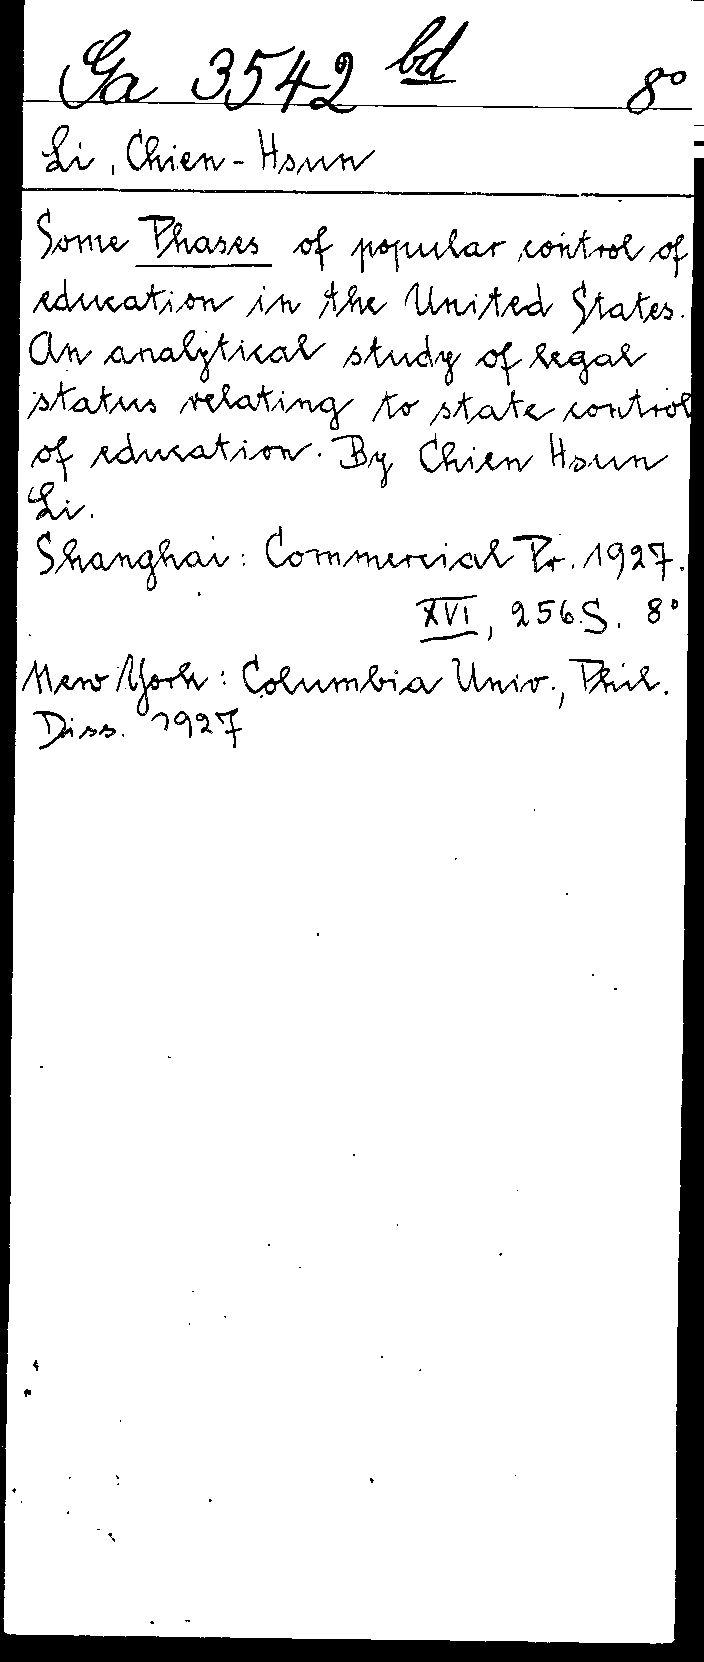 Ga 3542 bd 8°
Li, Chien-Hsun
Some Phases of popular control of
education in the United States.
An analytical study of legal
status relating to state control
of education. By Chien Hsun
Li.
Shanghai: Commercial Pr. 1927.
XVI, 256 S. 8°
New York: Columbia Univ., Phil.
Diss. 1927